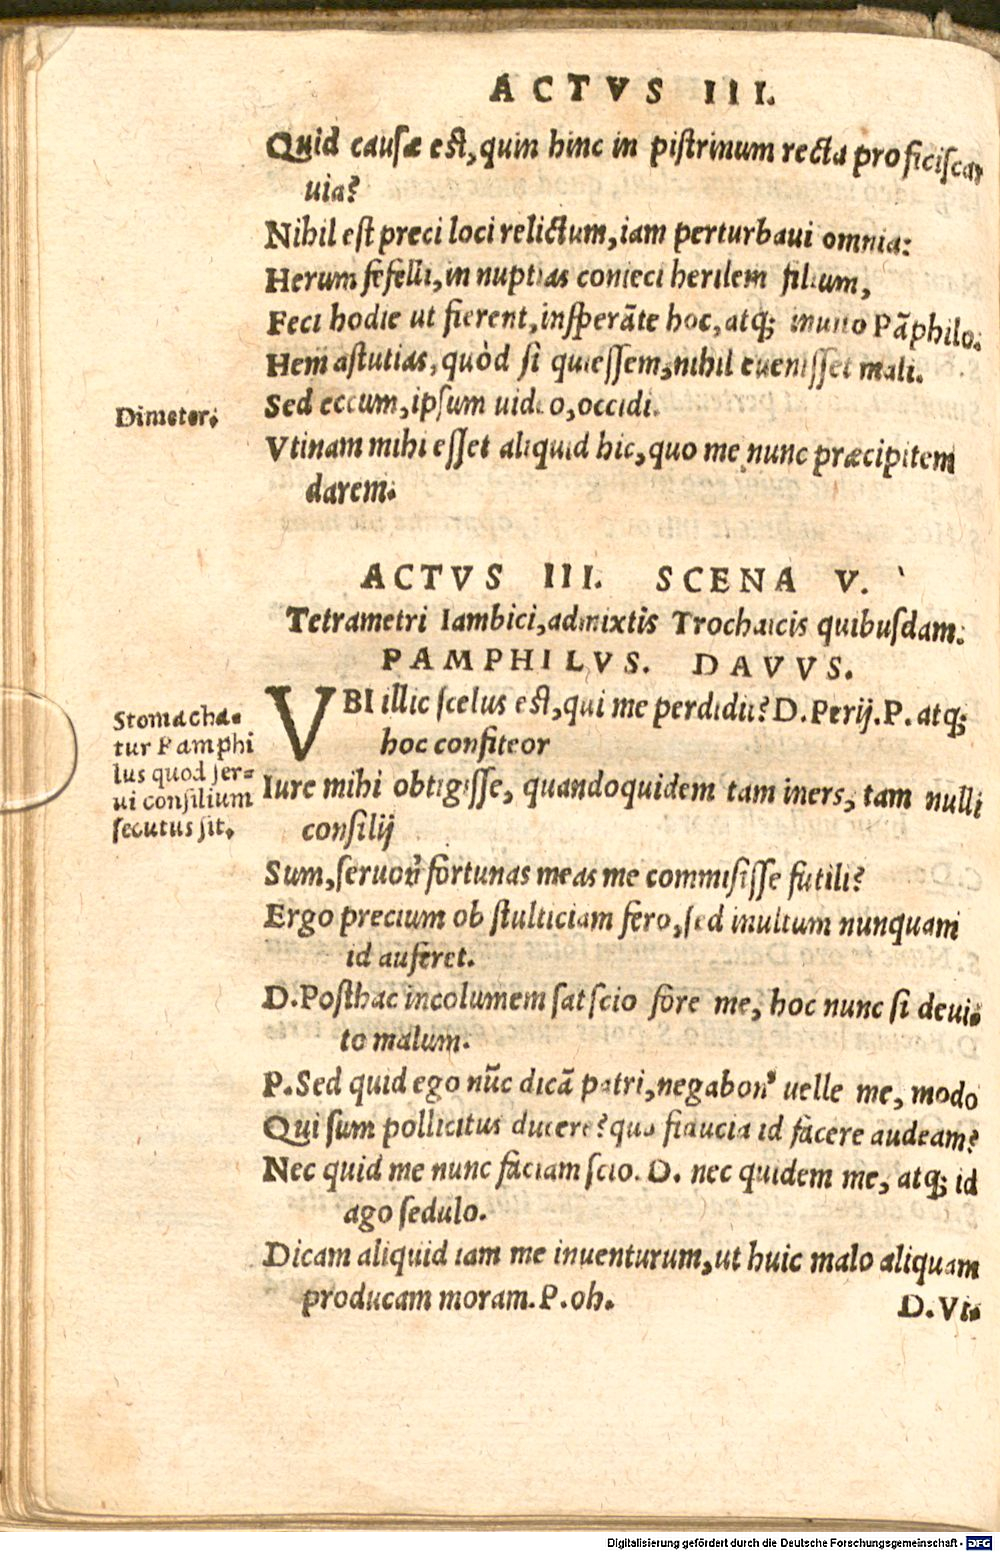 ACTVS III.
Quid causæ est, quin hinc in pistrinum recta proficiscar
uia?
Nihil est preci loci relictum, iam perturbaui omnia:
Herum fefelli, in nuptias conieci herilem filium,
Feci hodie ut fierent, insperãte hoc, atq; inuito Pãphilo.
Hem astutias, quòd si quiessem, nihil euenisset mali.
Dimeter.
Sed eccum, ipsum uideo, occidi.
Vtinam mihi esset aliquid hic, quo me nunc præcipitem
darem.
ACTVS III. SCENA V.
Tetrametri Iambici, admixtis Trochaicis quibusdam.
PAMPHILVS. DAVVS.
Stomacha-
tur Pamphi
lus quod ser-
ui consilium
secutus sit.
VBI illic scelus est, qui me perdidit? D. Perij. P. atq;
hoc confiteor
Iure mihi obtigisse, quandoquidem tam iners, tam nulli
consilij
Sum, seruon' fortunas meas me commisisse futili?
Ergo precium ob stulticiam fero, sed inultum nunquam
id auferet.
D. Posthac incolumem sat scio fore me, hoc nunc si deui-
to malum.
P. Sed quid ego nũc dicã patri, negabon' uelle me, modo
Qui sum pollicitus ducere? qua fiducia id facere audeam?
Nec quid me nunc faciam scio. D. nec quidem me, atq; id
ago sedulo.
Dicam aliquid iam me inuenturum, ut huic malo aliquam
producam moram. P. oh.
D. Vi-
Digitalisierung gefördert durch die Deutsche Forschungsgemeinschaft - DFG